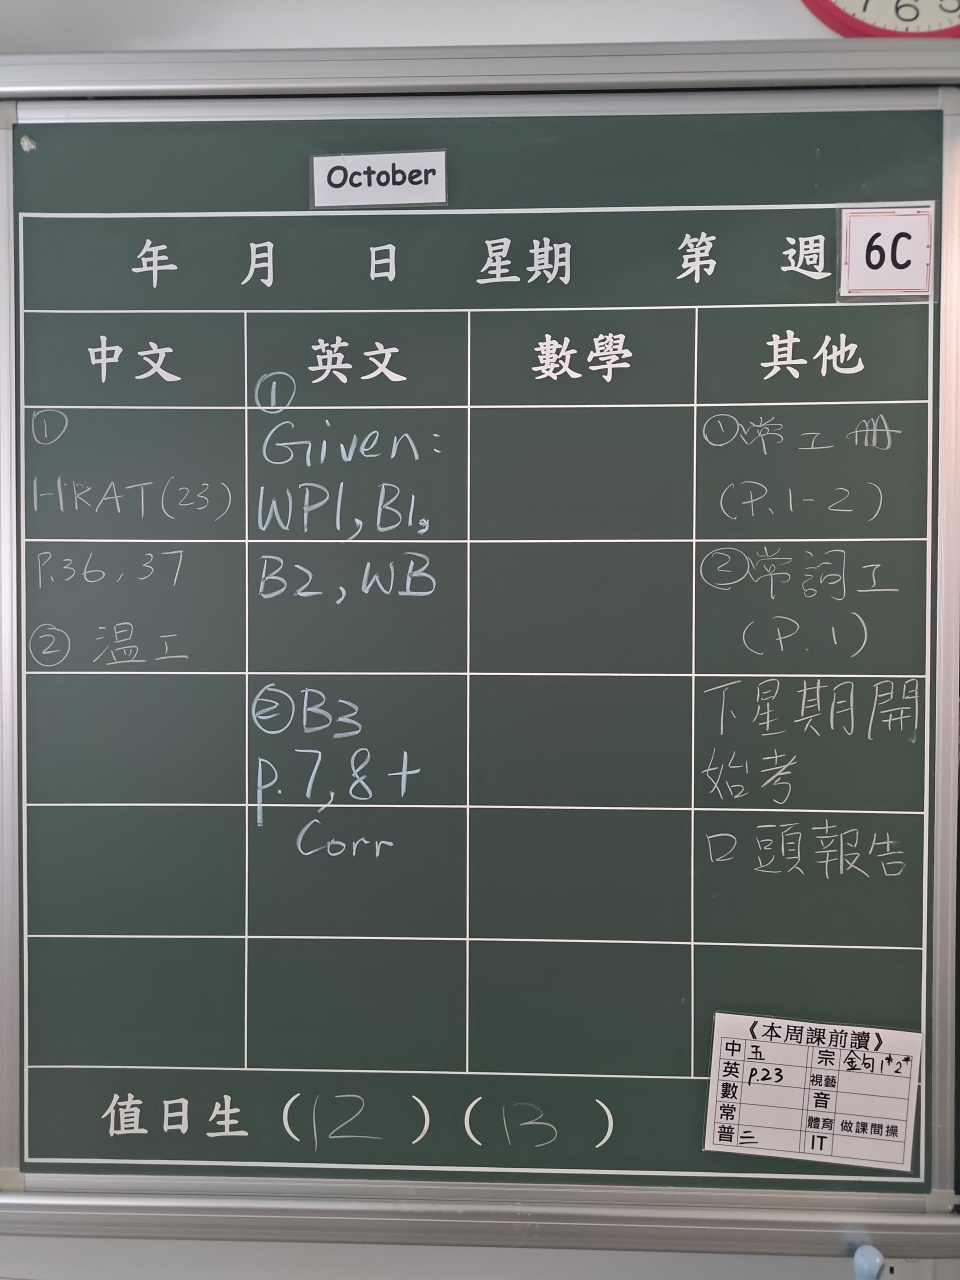 7 6 5
October
年 月 日 星期 第 週 6C
中文 英文 數學 其他
①
HKAT(23)
P.36, 37
② 温工
①
Given:
WP1, B1,
B2, WB
② B3
p.7, 8 +
Corr
①常工冊
(P.1-2)
②常詞工
(P.1)
下星期開
始考
口頭報告
值日生 (12) (13)
《本周課前讀》
中 五 宗 金句1*2*
英 p.23 視藝
數 音
常 體育 做課間操
普 三 IT